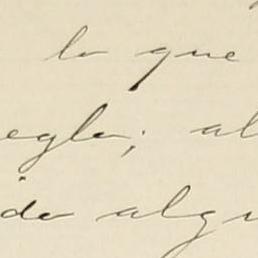 lo que
egla; al
ida algu